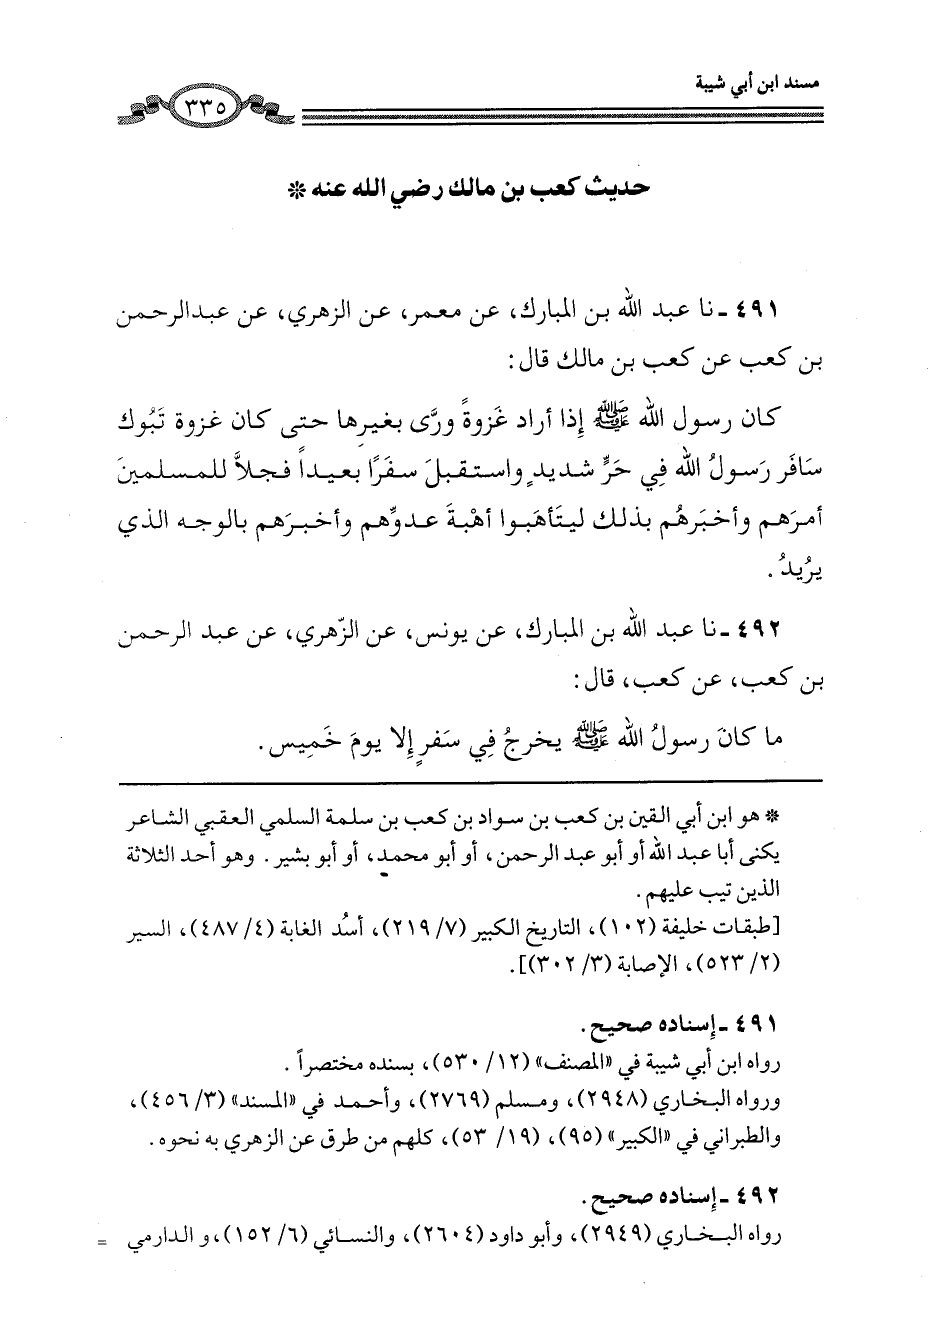 مسند ابن أبي شيبة
٣٣٥
حديث كعب بن مالك رضي الله عنه *
٤٩١ ـ نا عبد الله بن المبارك، عن معمر، عن الزهري، عن عبدالرحمن
بن كعب عن كعب بن مالك قال:
كان رسول الله ﷺ إذا أراد غَزوةً ورَّى بغيرها حتى كان غزوة تَبُوك
سَافَر رَسولُ الله فِي حَرٍّ شديدٍ واستقبلَ سفَرًا بعيداً فجلاَّ للمسلمينَ
أمرَهم وأخبَرهُم بذلك ليتَأهَبوا أهْبةَ عدوِّهم وأخبرَهم بالوجه الذي
يرُيدُ .
٤٩٢ ـ نا عبد الله بن المبارك، عن يونس، عن الزّهري، عن عبد الرحمن
بن كعب، عن كعب، قال:
ما كانَ رسولُ الله ﷺ يخرجُ فِي سَفرٍ إلا يومَ خَمِيس .
* هو ابن أبي القين بن كعب بن سواد بن كعب بن سلمة السلمي العقبي الشاعر
يكنى أبا عبد الله أو أبو عبد الرحمن، أو أبو محمد، أو أبو بشير . وهو أحد الثلاثة
الذين تيب عليهم .
[طبقات خليفة (١٠٢)، التاريخ الكبير (٧/ ٢١٩)، أسُد الغابة (٤/ ٤٨٧)، السير
(٢/ ٥٢٣)، الإصابة (٣/ ٣٠٢)].
٤٩١ ـ إسناده صحيح .
رواه ابن أبي شيبة في «المصنف» (١٢/ ٥٣٠)، بسنده مختصراً .
ورواه البخاري (٢٩٤٨)، ومسلم (٢٧٦٩)، وأحمد في «المسند» (٣/ ٤٥٦)،
والطبراني في «الكبير» (٩٥)، (١٩/ ٥٣)، كلهم من طرق عن الزهري به نحوه .
٤٩٢ ـ إسناده صحيح .
رواه البخاري (٢٩٤٩)، وأبو داود (٢٦٠٤)، والنسائي (٦/ ١٥٢)، و الدارمي =